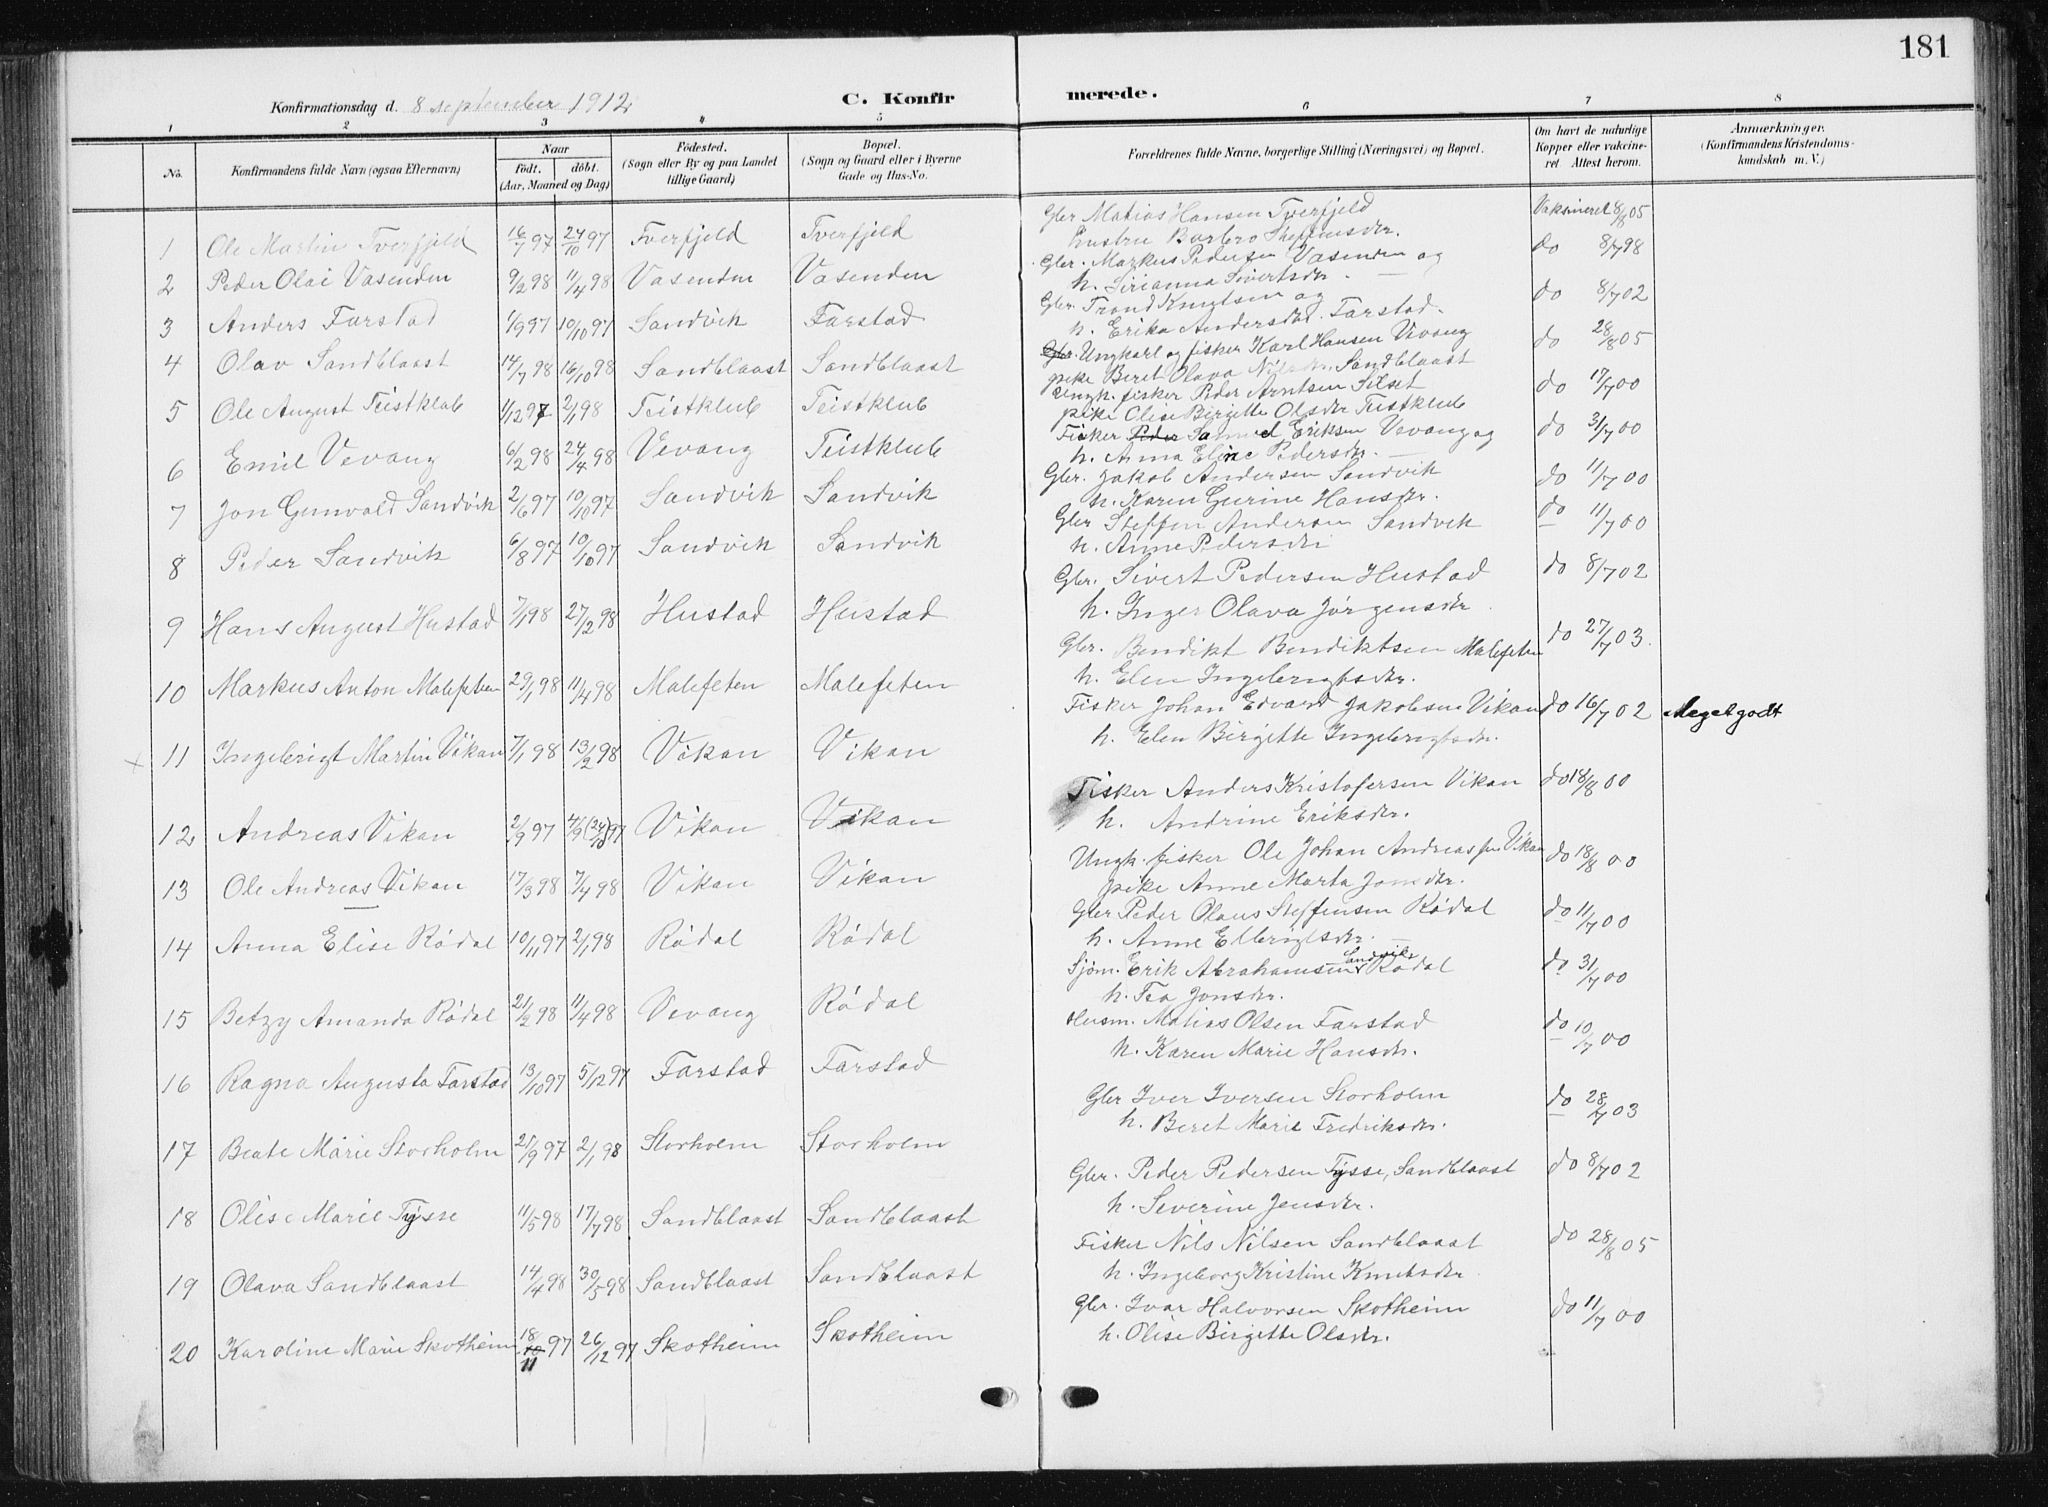 181
Konfirmationsdag d. 8 september 1912. C. Konfirmerede.
1 2 3 4 5 6 7 8
No. Konfirmandens fulde Navn (ogsaa Efternavn) Naar født. døbt. (Aar, Maaned og Dag) Födested. (Sogn eller By og paa Landet tillige Gaard) Bopæl. (Sogn og Gaard eller i Byerne Gade og Hus-No. Forældrenes fulde Navne, borgerlige Stilling (Næringsvei) og Bopæl. Om havt de naturlige Kopper eller vakcineret. Attest herom. Anmærkninger. (Konfirmandens Kristendomskundskab m. V.)
1 Ole Martin Tverfjeld 16/7 97 24/10 97 Tverfjeld Tverfjeld Gbr Matias Hansen Tverfjeld Vaksineret 8/8 05
Hustru Barbro Steffensdr.
2 Peder Olai Vasenden 9/2 98 11/4 98 Vasenden Vasenden Gbr. Markus Pedersen Vasenden og do 8/7 98
h. Sirianna Sivertsdr
3 Anders Farstad 1/9 97 10/10 97 Sandvik Farstad Gbr. Trond Knutsen og do 8/7 02
h. Erika Andersdr. Farstad.
4 Olav Sandblaast 14/7 98 16/10 98 Sandblaast Sandblaast Gbr. Ungkarl og fisker Karl Hansen Vevang do 28/8 05
pike Beret Olava Nilsdr. Sandblaast
5 Ole August Teistklub 1/12 97 2/1 98 Teistklub Teistklub Ungk. fisker Peder Arntsen Silset do 17/7 00
pike Olise Birgitte Olsdr Teistklub
6 Emil Vevang 6/2 98 24/4 98 Vevang Teistklub Fisker Peder Samuel Eriksen Vevang og do 31/7 00
h. Anna Eline Pedersdr.
7 Jon Gunvald Sandvik 2/6 97 10/10 97 Sandvik Sandvik Gbr. Jakob Andersen Sandvik do 11/7 00
h. Karen Gurine Hansdr.
8 Peder Sandvik 6/8 97 10/10 97 Sandvik Sandvik Gbr Steffen Andersen Sandvik do 11/7 00
h. Anne Pedersdr
9 Hans August Hustad 7/1 98 27/2 98 Hustad Hustad Gbr. Sivert Pedersen Hustad do 8/7 02
h. Inger Olava Jørgensdr.
10 Markus Anton Malefeten 29/1 98 11/4 98 Malefeten Malefeten Gbr. Bendikt Bendiktsen Malefeten do 27/7 03.
h. Elen Ingebrigtsdr.
11 Ingebrigt Martin Vikan 7/1 98 13/2 98 Vikan Vikan Fisker Johan Edvard Jakobsen Vikan do 16/7 02 Meget godt
h. Elen Birgitte Ingebrigtsdr.
12 Andreas Vikan 2/9 97 4/9 (24/10) 97 Vikan Vikan Fisker Anders Kristofersen Vikan do 18/8 00
h. Andrine Eriksdr.
13 Ole Andreas Vikan 17/3 98 7/4 98 Vikan Vikan Ungk. fisker Ole Johan Andreassen Vikan do 18/8 00
pike Anne Marta Jonsdr.
14 Anna Elise Rødal 10/11 97 2/1 98 Rødal Rødal Gbr Peder Olaus Steffensen Rødal do 11/7 00
h. Anne Elbrigtsdr.
15 Betzy Amanda Rødal 21/2 98 11/4 98 Vevang Rødal Sjøm. Erik Abrahamsen Sandvik Rødal do 31/7 00
h. Tea Jonsdr.
16 Ragna Augusta Farstad 13/10 97 5/12 97 Farstad Farstad Husm. Matias Olsen Farstad do 10/7 00
h. Karen Marie Hansdr.
17 Beate Marie Storholm 21/9 97 2/1 98 Storholm Storholm Gbr Iver Iversen Storholm do 28/7 03
h. Beret Marie Fredriksdr.
18 Olise Marie Tysse 11/5 98 17/7 98 Sandblaast Sandblaast Gbr. Peder Pedersen Tysse, Sandblaast do 8/7 02
h. Severine Jensdr.
19 Olava Sandblaast 14/4 98 30/5 98 Sandblaast Sandblaast Fisker Nils Nilsen Sandblaast do 28/8 05
h. Ingeborg Kristine Knutsdr
20 Karoline Marie Skotheim 18/10 11 97 26/12 97 Skotheim Skotheim Gbr. Ivar Halvorsen Skotheim do 11/7 00
h. Olise Birgitte Olsdr.